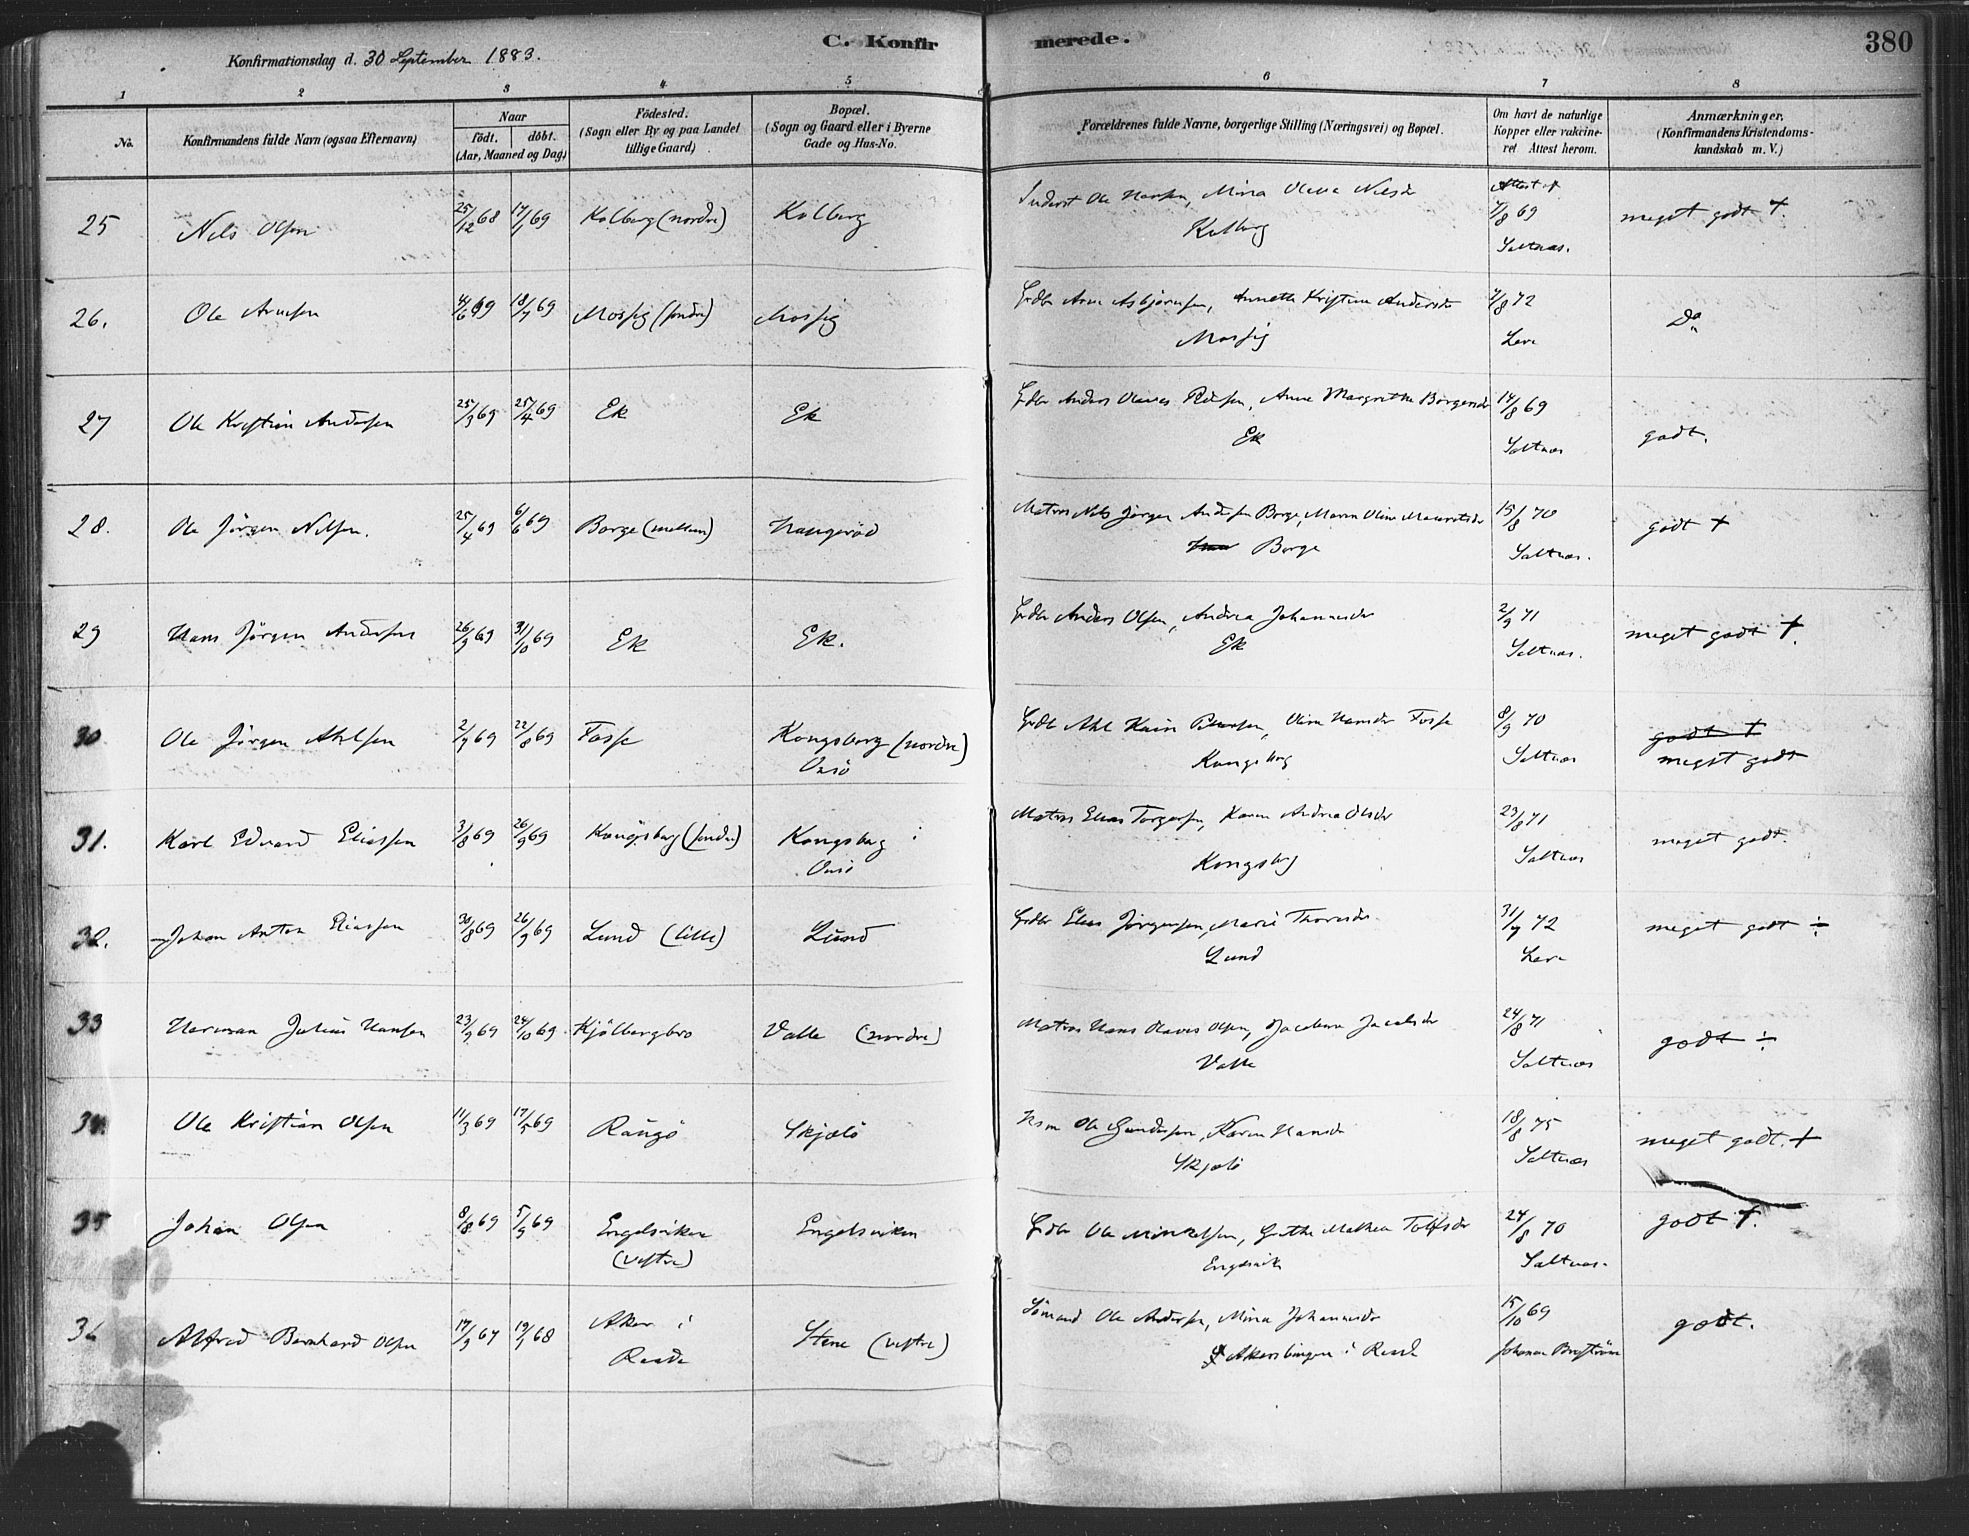 C. Konfirmerede.
380
Konfirmationsdag d. 30 September 1883.
1 2 3 4 5 6 7 8
No.
Konfirmandens fulde Navn (ogsaa Efternavn)
Naar
födt. döbt.
(Aar, Maaned og Dag)
Födested.
(Sogn eller By og paa Landet
tillige Gaard)
Bopæl.
(Sogn og Gaard eller i Byerne
Gade og Hus-No.
Forældrenes fulde Navne, borgerlige Stilling (Næringsvei) og Bopæl.
Om havt de naturlige
Kopper eller vakcine-
ret Attest herom.
Anmærkninger,
(Konfirmandens Kristendoms-
kundskab m. V.)
25 Nils Olsen 25/12 68 17/1 69 Kolberg (nordre) Kolberg Inderst Ole Hansen, Mina Olava Nilsdr Attest +
Kolberg 7/8 69 meget godt +.
Saltnæs.
26. Ole Arnesen 4/6 69 18/7 69 Mossig (söndre) Mossig Grdbr Arne Asbjörnsen, Annette Kristine Andersdr 7/8 72 Do
Mossig Lere
27 Ole Kristian Andersen 25/3 69 25/4 69 Ek Ek Grdbr Anders Olaves, Anne Margrethe Börgersdr 14/8 69 godt.
Ek Saltnæs
28. Ole Jörgen Nilsen. 25/4 69 6/6 69 Borge (mellem) Haugeröd Matros Nils Jörgen Andersen Borge, Maren Oline 15/8 70 godt +
Borge Saltnæs.
29 Hans Jörgen Andersen 26/9 69 31/10 69 Ek Ek. Grdbr Anders Olsen, Andrea Johannesdr 2/9 71 meget godt +.
Ek Saltnæs.
30 Ole Jörgen Akselsen 2/7 69 22/8 69 Fosse Kongsberg (nordre) Onsö Oline Hansdr Fosse 8/9 70 godt +
Kongsberg Saltnæs meget godt
31. Karl Edvard Eliassen 3/8 69 26/9 69 Kongsberg (söndre) Kongsberg i Onsö Matros Elias Torgersen, Karen Andrea Olsdr 23/8 71 meget godt.
Kongsberg Saltnæs
32. Johan Anton Eliassen 30/8 69 26/9 69 Lund (lille) Lund Grdbr Elias Jörgensen, Marie Thoresdr 31/7 72 meget godt ÷
Lund Lere
33 Herman Julius Hansen 23/9 69 24/10 69 Kjölbergbro Valle (nordre) Matros Hans Olaves Olsen, Jacobine Jacobsdr 24/8 71 godt ÷
Valle Saltnæs
34. Ole Kristian Olsen 11/3 69 17/5 69 Raugö Skjælö Hsm Ole Gundersen, Karen Hansdr 18/8 75 meget godt. +
Skjælö Saltnæs
35 Johan Olsen 8/8 69 5/9 69 Engelsviken (vestre) Engelsviken Grdbr Ole Mikkelsen, Grethe Mathea Tollefsdr 24/8 70 godt +.
Engelsvik Saltnæs.
36 Alfred Bernhard Olsen 17/9 67 19/1 68 Aker i Raade Stene (vestre) Sömand Ole Andersen, Mina Johannesdr 15/10 69 godt.
i Raade Johanne